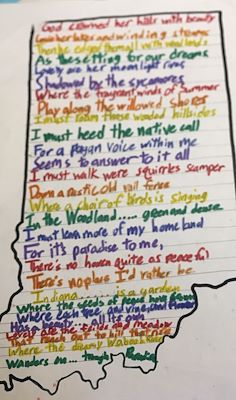 God crowned her hills with beauty
Gave her lakes and winding streams
Then he edged them all with woodlands
As the setting for our dreams
Lovely are her moonlight rivers
Shadowed by the sycamores
Where the fragrant winds of Summer
Play along the willowed shores
I must roam those wooded hillsides
I must heed the native call
For a Pagan voice within me
Seems to answer to it all
I must walk were squirles scamper
Down a rustic old rail fence
Where a choir of birds is singing
In the Woodland..... green and dense
I must learn more of my homeland
For it's paradise to me,
There's no haven quite as peaceful
There's no place I'd rather be.
Indiana....... is a garden
Where the seeds of peace have grown
Where each tree and vine, and flower
Has a beauty.... all its own
Lovely are the fields and meadow
That reach out to hills that rise
Where the dreamy Wabash River
Wanders on....